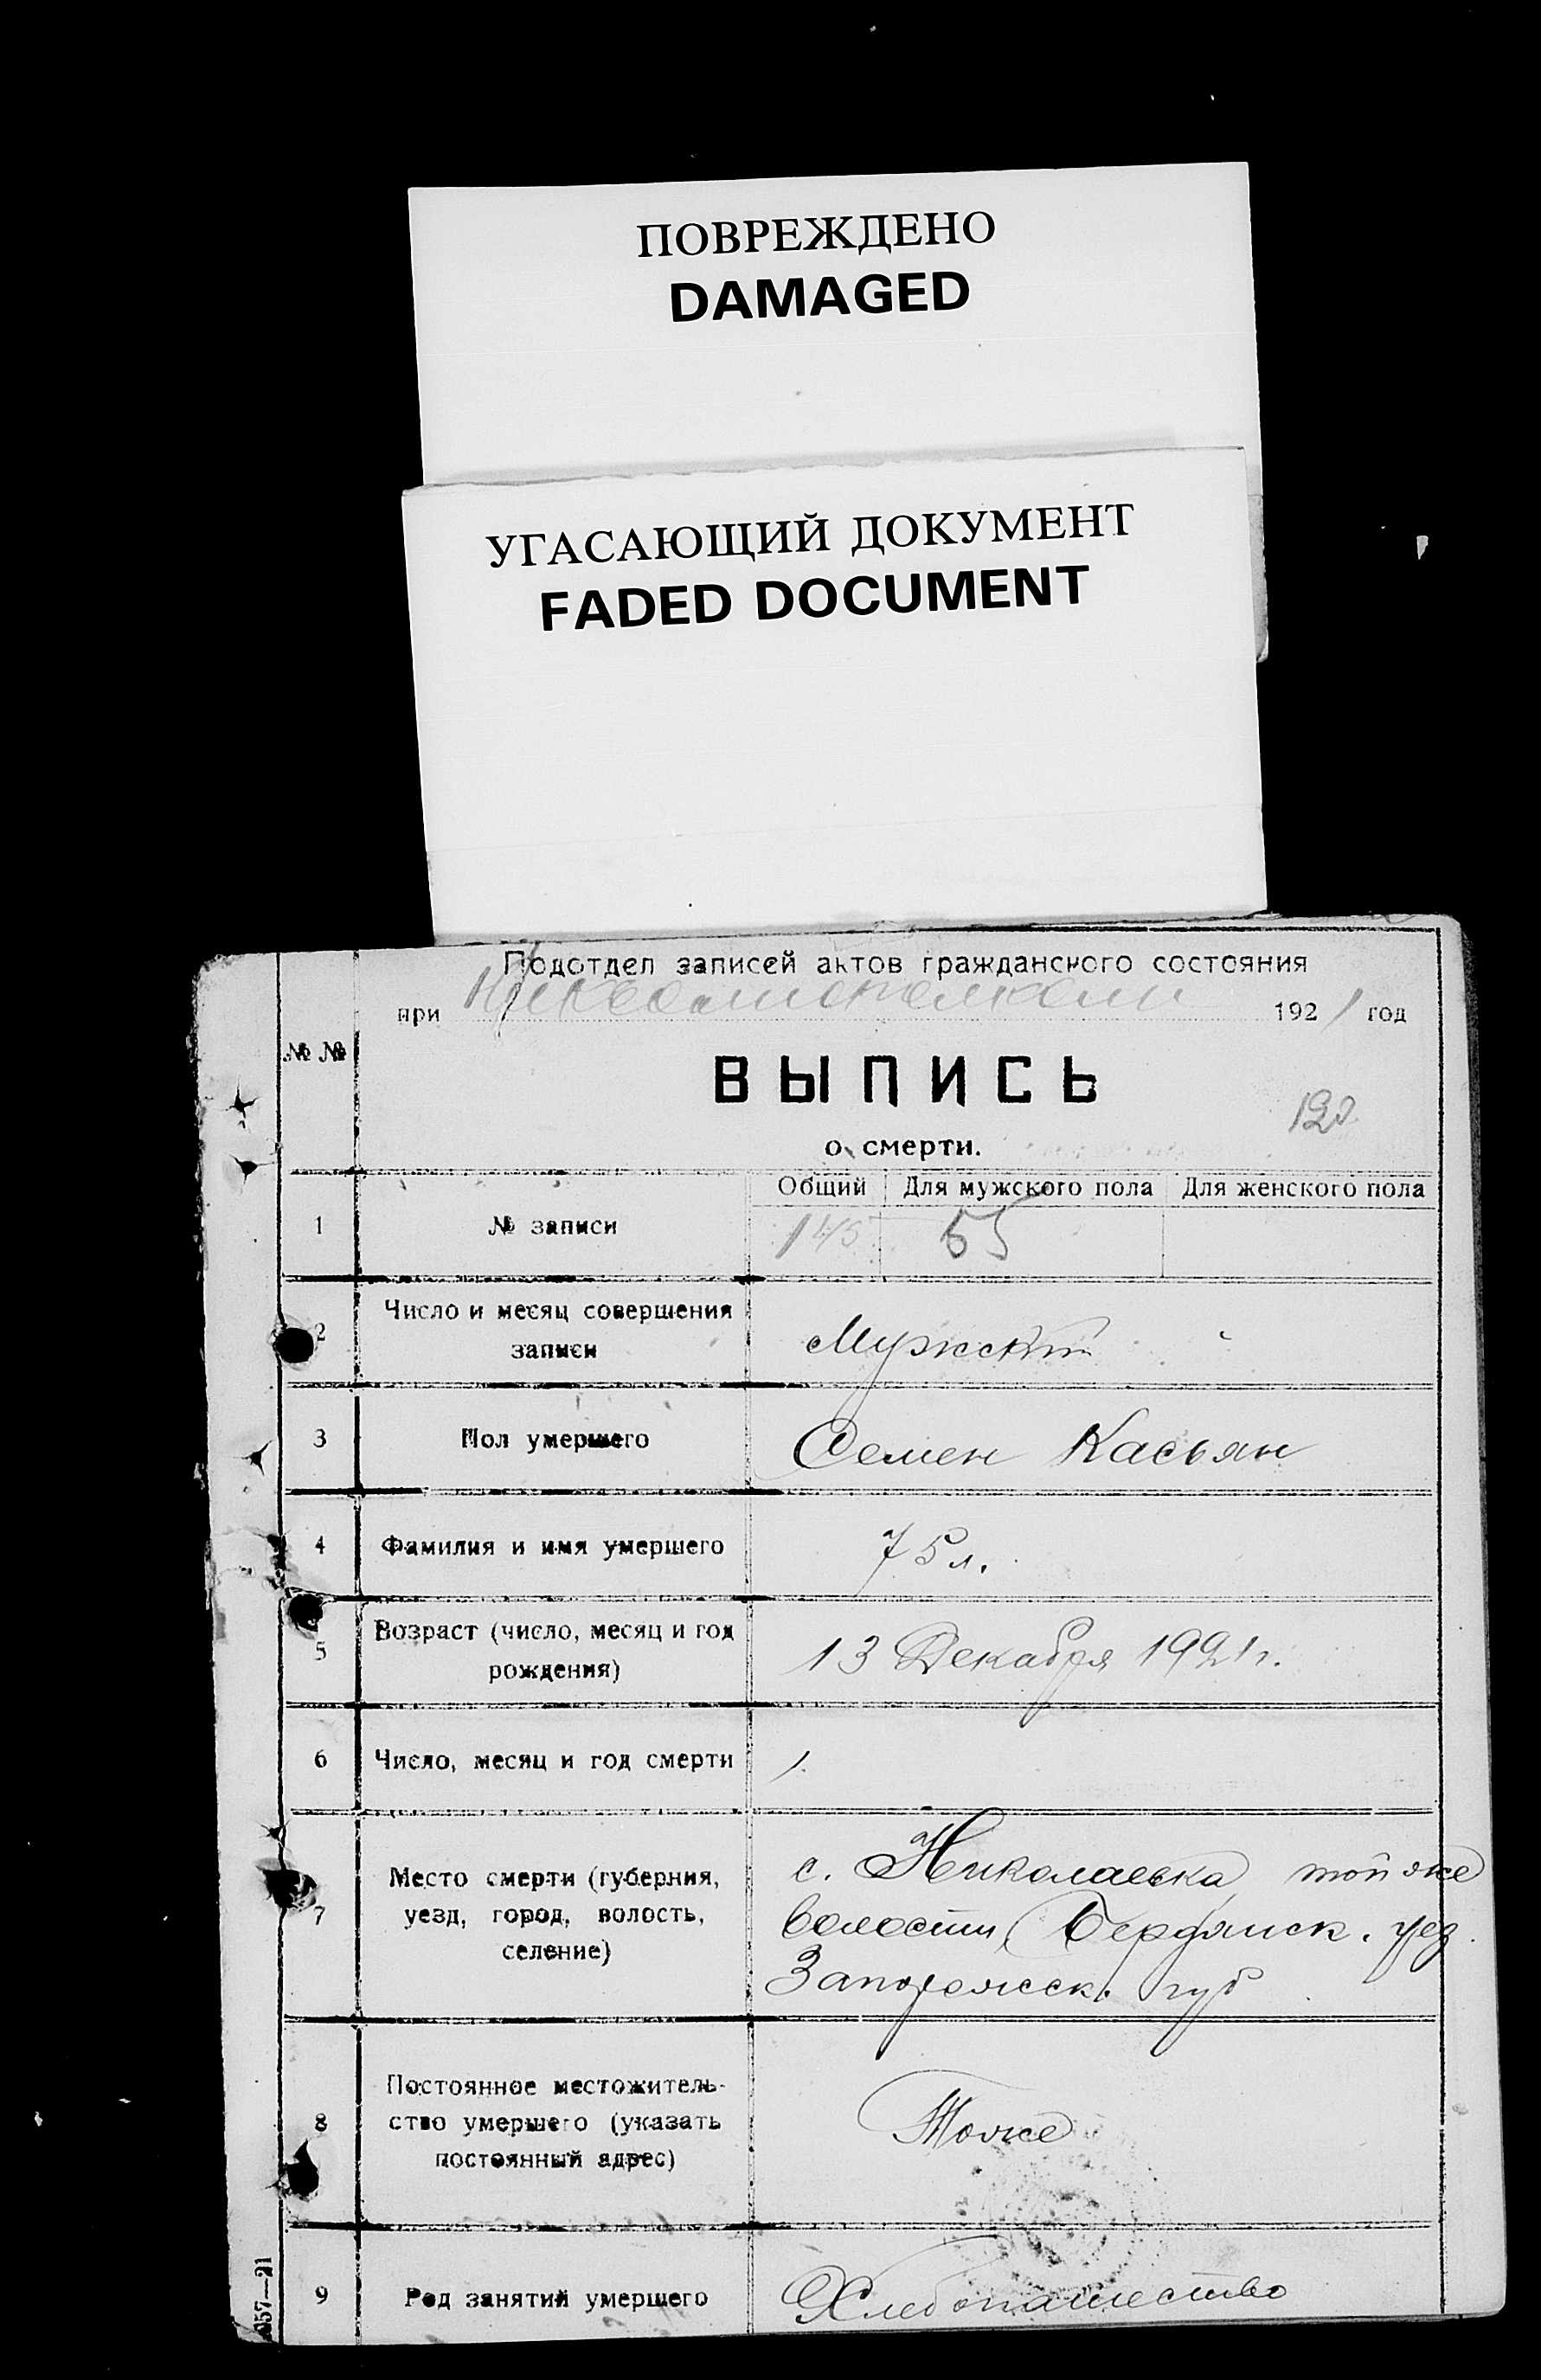 ПОВРЕЖДЕНО
DAMAGED
УГАСАЮЩИЙ ДОКУМЕНТ
FADED DOCUMENT
Подотдел записей актов гражданского состояния
при 1921 год
№ №
ВЫПИСЬ
120
о смерти.
Общий Для мужского пола Для женского пола
1 № записи 145 55
2 Число и месяц совершения
записи
Мужской
3 Пол умершего Семен Касьян
4 Фамилия и имя умершего 75 л.
5 Возраст (число, месяц и год
рождения)
13 Декабря 1921 г.
6 Число, месяц и год смерти
7 Место смерти (губерния,
уезд, город, волость,
селение)
с. Николаевка той же
волости, Бердянск. уез.
Запорожск. губ
8 Постоянное местожитель-
ство умершего (указать
постоянный адрес)
Тоже
9 Род занятий умершего Хлебопашество
057—21